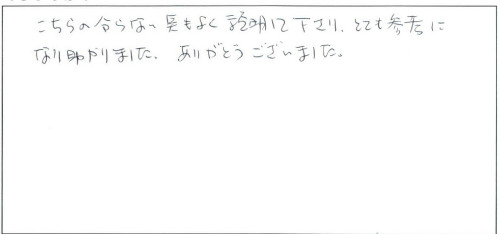 こちらの分らない点もよく説明して下さり、とても参考に
なり助かりました。ありがとうございました。